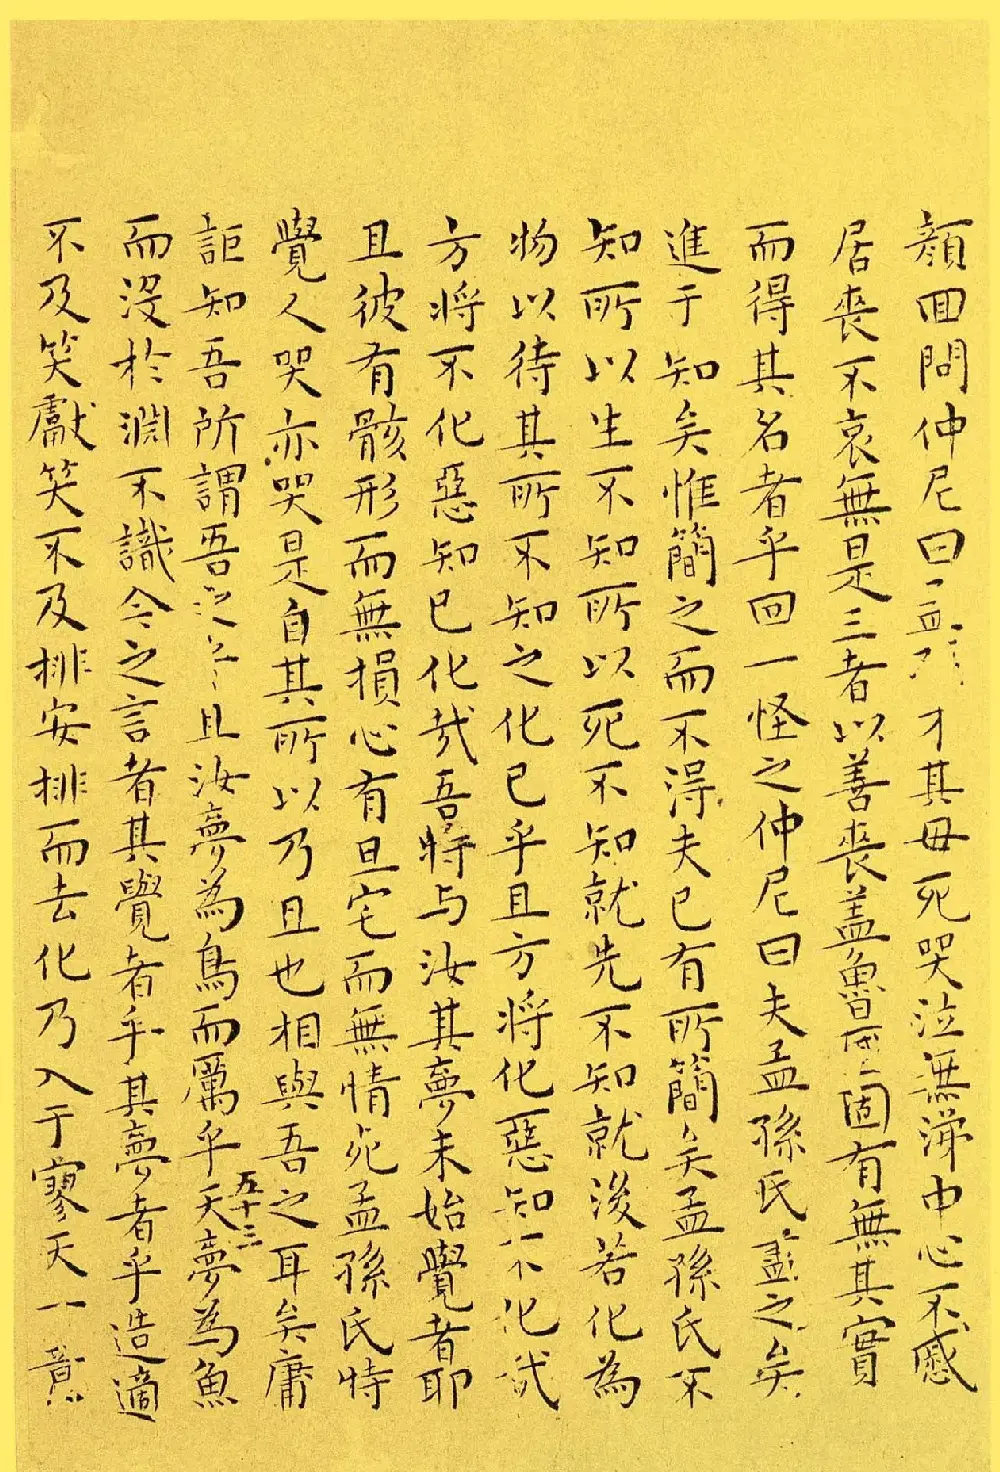 顔回問仲尼曰孟孫才其毋死哭泣無涕中心不慼
居喪不哀無是三者以善喪盖魯國固有無其實
而得其名者乎回一怪之仲尼曰夫孟孫氏盡之矣
進于知矣惟簡之而不淂夫已有所簡矣孟孫氏不
知所以生不知所以死不知就先不知就後若化為
物以待其所不知之化已乎且方將化惡知不化哉
方將不化惡知已化哉吾特与汝其夢未始覺者耶
且彼有骸形而無損心有旦宅而無情死孟孫氏特
覺人哭亦哭是自其所以乃且也相與吾之耳矣庸
詎知吾所謂吾之乎且汝夢為鳥而厲乎天夢為魚
五十三
而没於淵不識今之言者其覺者乎其夢者乎造適
不及笑獻笑不及排安排而去化乃入于寥天一